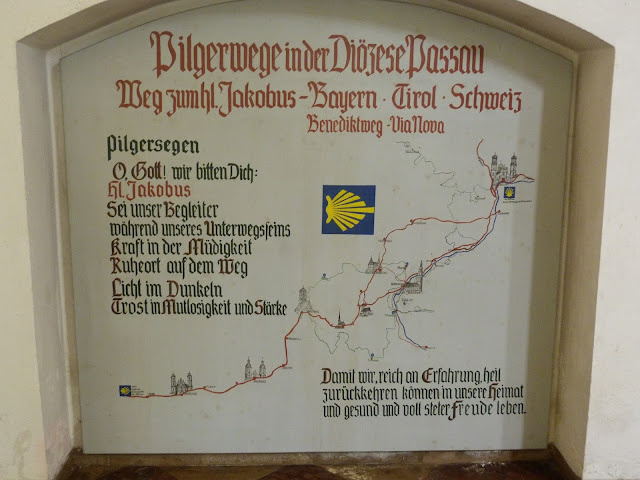 Pilgerwege in der Diözese Passau
Weg zum hl. Jakobus - Bayern · Tirol · Schweiz
Benediktweg - Via Nova
Pilgersegen
O, Gott! wir bitten Dich:
hl. Jakobus
Sei unser Begleiter
während unseres Unterwegsseins
Kraft in der Müdigkeit
Ruheort auf dem Weg
Licht im Dunkeln
Trost in Mutlosigkeit und Stärke
Damit wir, reich an Erfahrung, heil
zurückkehren können in unsere Heimat
und gesund und voll steter Freude leben.